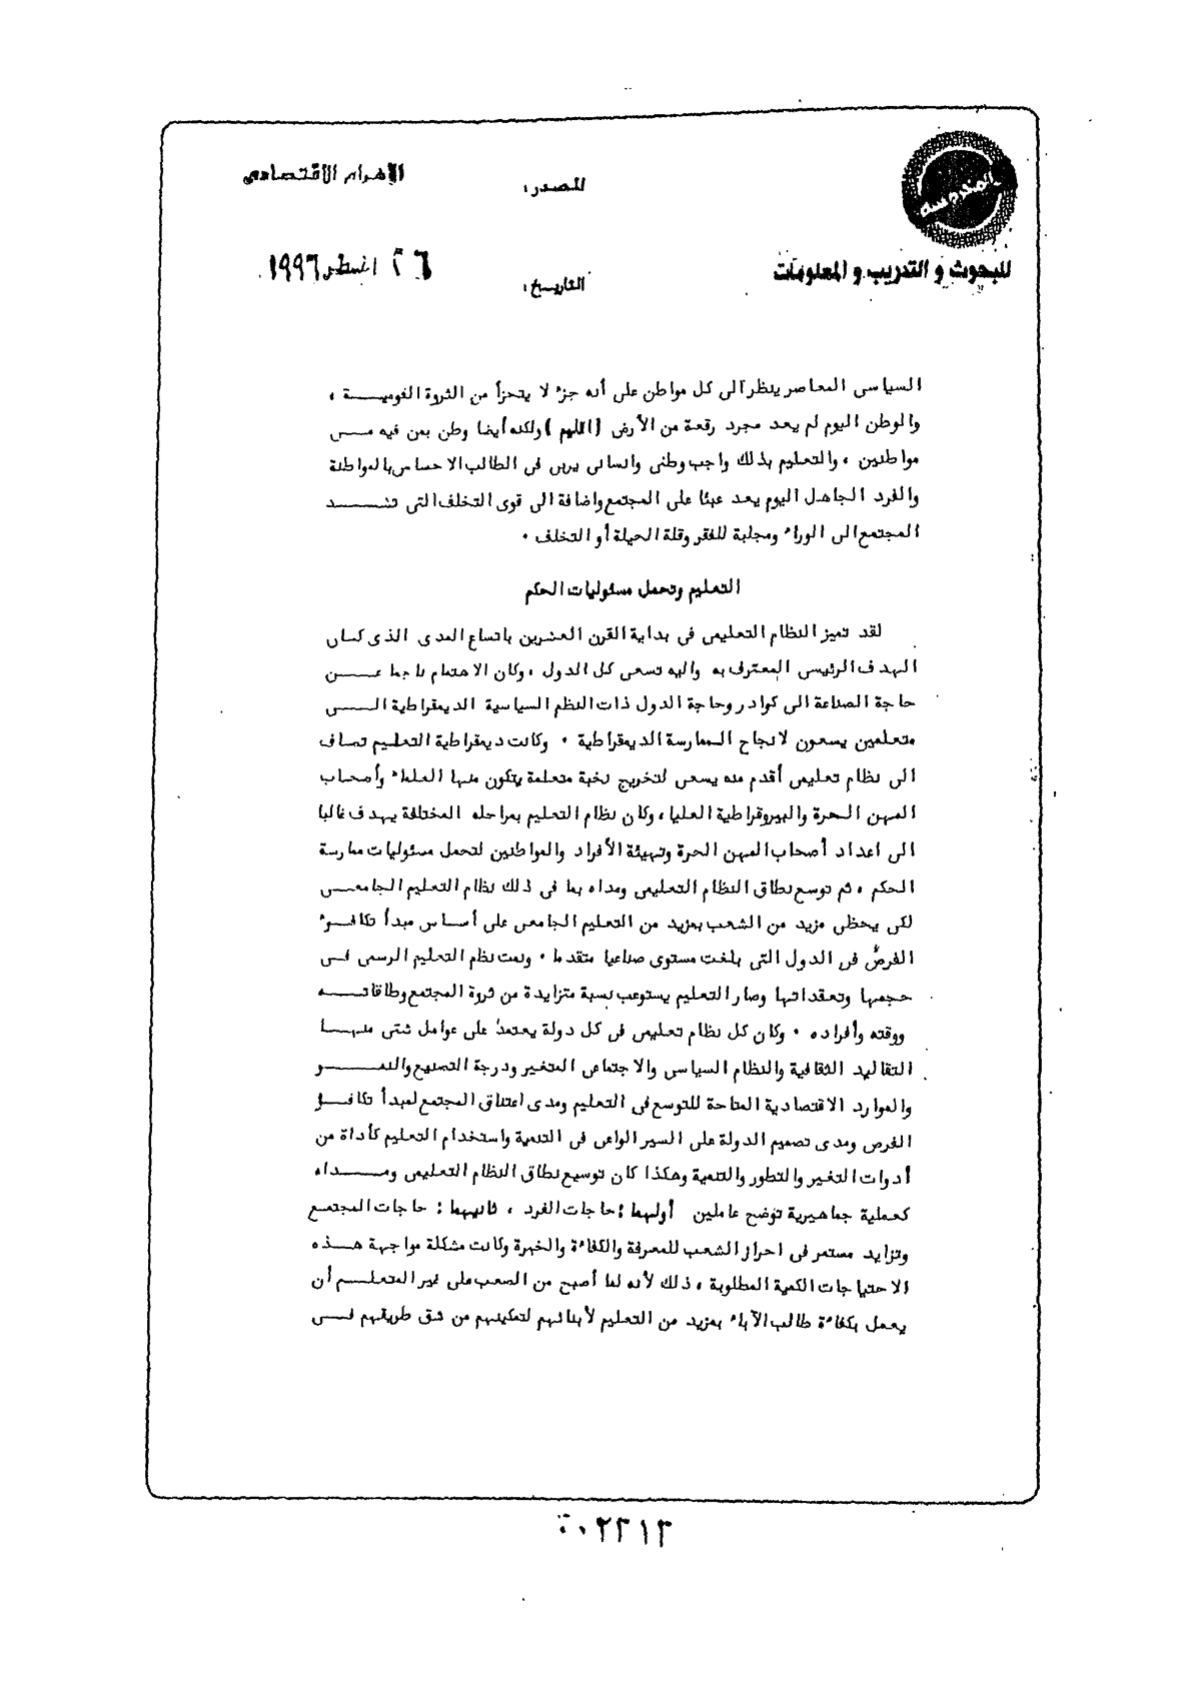 الأهرام الاقتصادى
المصدر:
للبحوث و التدريب و المعلومات
التاريخ:
٢٦ أغسطس ١٩٩٦
السياسى المعاصر ينظر الى كل مواطن على أنه جزء لا يتجزأ من الثروة القومية ،
والوطن اليوم لم يعد مجرد رقعة من الأرض (اقليم) ولكنه أيضا وطن بمن فيه مــن
مواطنين ، والتعليم بذلك واجب وطنى وانسانى يربى فى الطالب الاحساس بالمواطنة
والفرد الجاهل اليوم يعد عبئا على المجتمع واضافة الى قوى التخلف التى تشــــد
المجتمع الى الوراء ومجلبة للفقر وقلة الحيلة أو التخلف ٠
التعليم وتحمل مسئوليات الحكم
لقد تميز النظام التعليمى فى بداية القرن العشرين باتساع المدى الذى كان
الهدف الرئيسى المعترف به واليه تسعى كل الدول ، وكان الاهتمام ناجما عــــن
حاجة الصناعة الى كوادر وحاجة الدول ذات النظم السياسية الديمقراطية الـــى
متعلمين يسعون لانجاح الممارسة الديمقراطية ٠ وكانت ديمقراطية التعليم تضاف
الى نظام تعليمى أقدم منه يسعى لتخريج نخبة متعلمة يتكون منها العلماء وأصحاب
المهن الحرة والبيروقراطية العليا ، وكان نظام التعليم بمراحله المختلفة يهدف غالبا
الى اعداد أصحاب المهن الحرة وتهيئة الأفراد والمواطنين لتحمل مسئوليات ممارسة
الحكم ، ثم توسع نطاق النظام التعليمى ومداه بما فى ذلك نظام التعليم الجامعــى
لكى يحظى مزيد من الشعب بمزيد من التعليم الجامعى على أساس مبدأ تكافــؤ
الفرص فى الدول التى بلغت مستوى صناعيا متقدما ٠ ونمت نظم التعليم الرسمى فــى
حجمها وتعقداتها وصار التعليم يستوعب نسبة متزايدة من ثروة المجتمع وطاقاتــــه
ووقته وأفراده ٠ وكان كل نظام تعليمى فى كل دولة يعتمد على عوامل شتى منهــا
التقاليد الثقافية والنظام السياسى والاجتماعى المتغير ودرجة التصنيع والنمــــو
والموارد الاقتصادية المتاحة للتوسع فى التعليم ومدى اعتناق المجتمع لمبدأ تكافــؤ
الفرص ومدى تصميم الدولة على السير الواعى فى التنمية واستخدام التعليم كأداة من
أدوات التغير والتطور والتنمية وهكذا كان توسيع نطاق النظام التعليمى ومــــداه
كعملية جماهيرية توضح عاملين أولهما : حاجات الفرد ، ثانيهما : حاجات المجتمع
وتزايد مستمر فى احراز الشعب للمعرفة والكفاءة والخبرة وكانت مشكلة مواجهة هــذه
الاحتياجات الكمية المطلوبة ، ذلك لأنه لما أصبح من الصعب على غير المتعلــم أن
يعمل بكفاءة طالب الآباء بمزيد من التعليم لأبنائهم لتمكينهم من شق طريقهم فــى